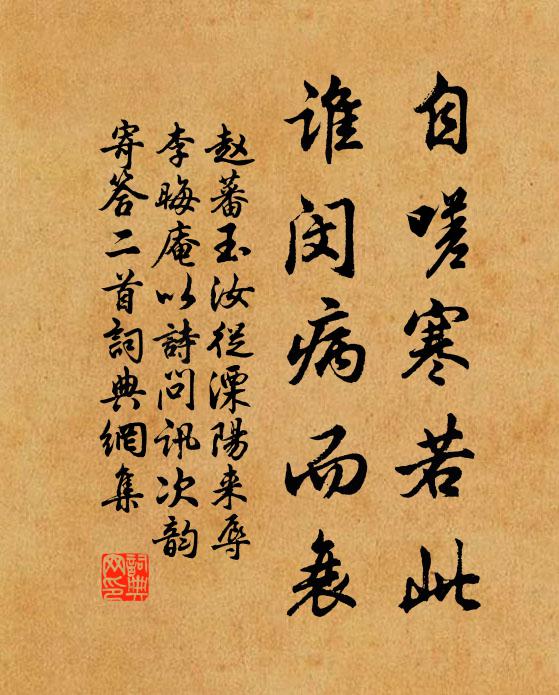 自嗟寒若此
谁闵病而衰
赵蕃玉汝从溧陽来辱
李晦庵以詩問訊次韵
寄答二首詞典網集
詞典
网印